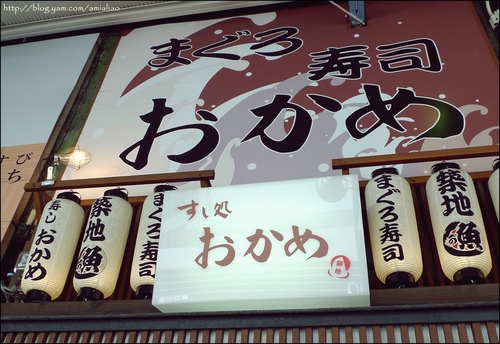 http://blog.yam.com/amialiao
まぐろ
寿司
おかめ
すし処
おかめ
築地
寿しおかめ
築地魚の
まぐろ寿司
まぐろ寿司
築地魚の
すび
ち